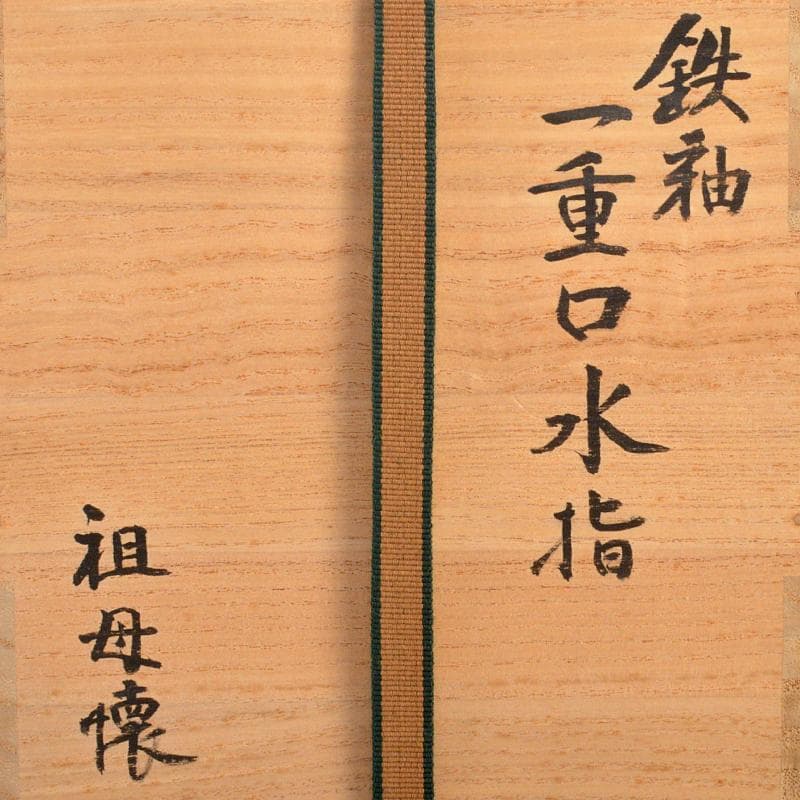 鉄釉
一重口水指
祖母懐